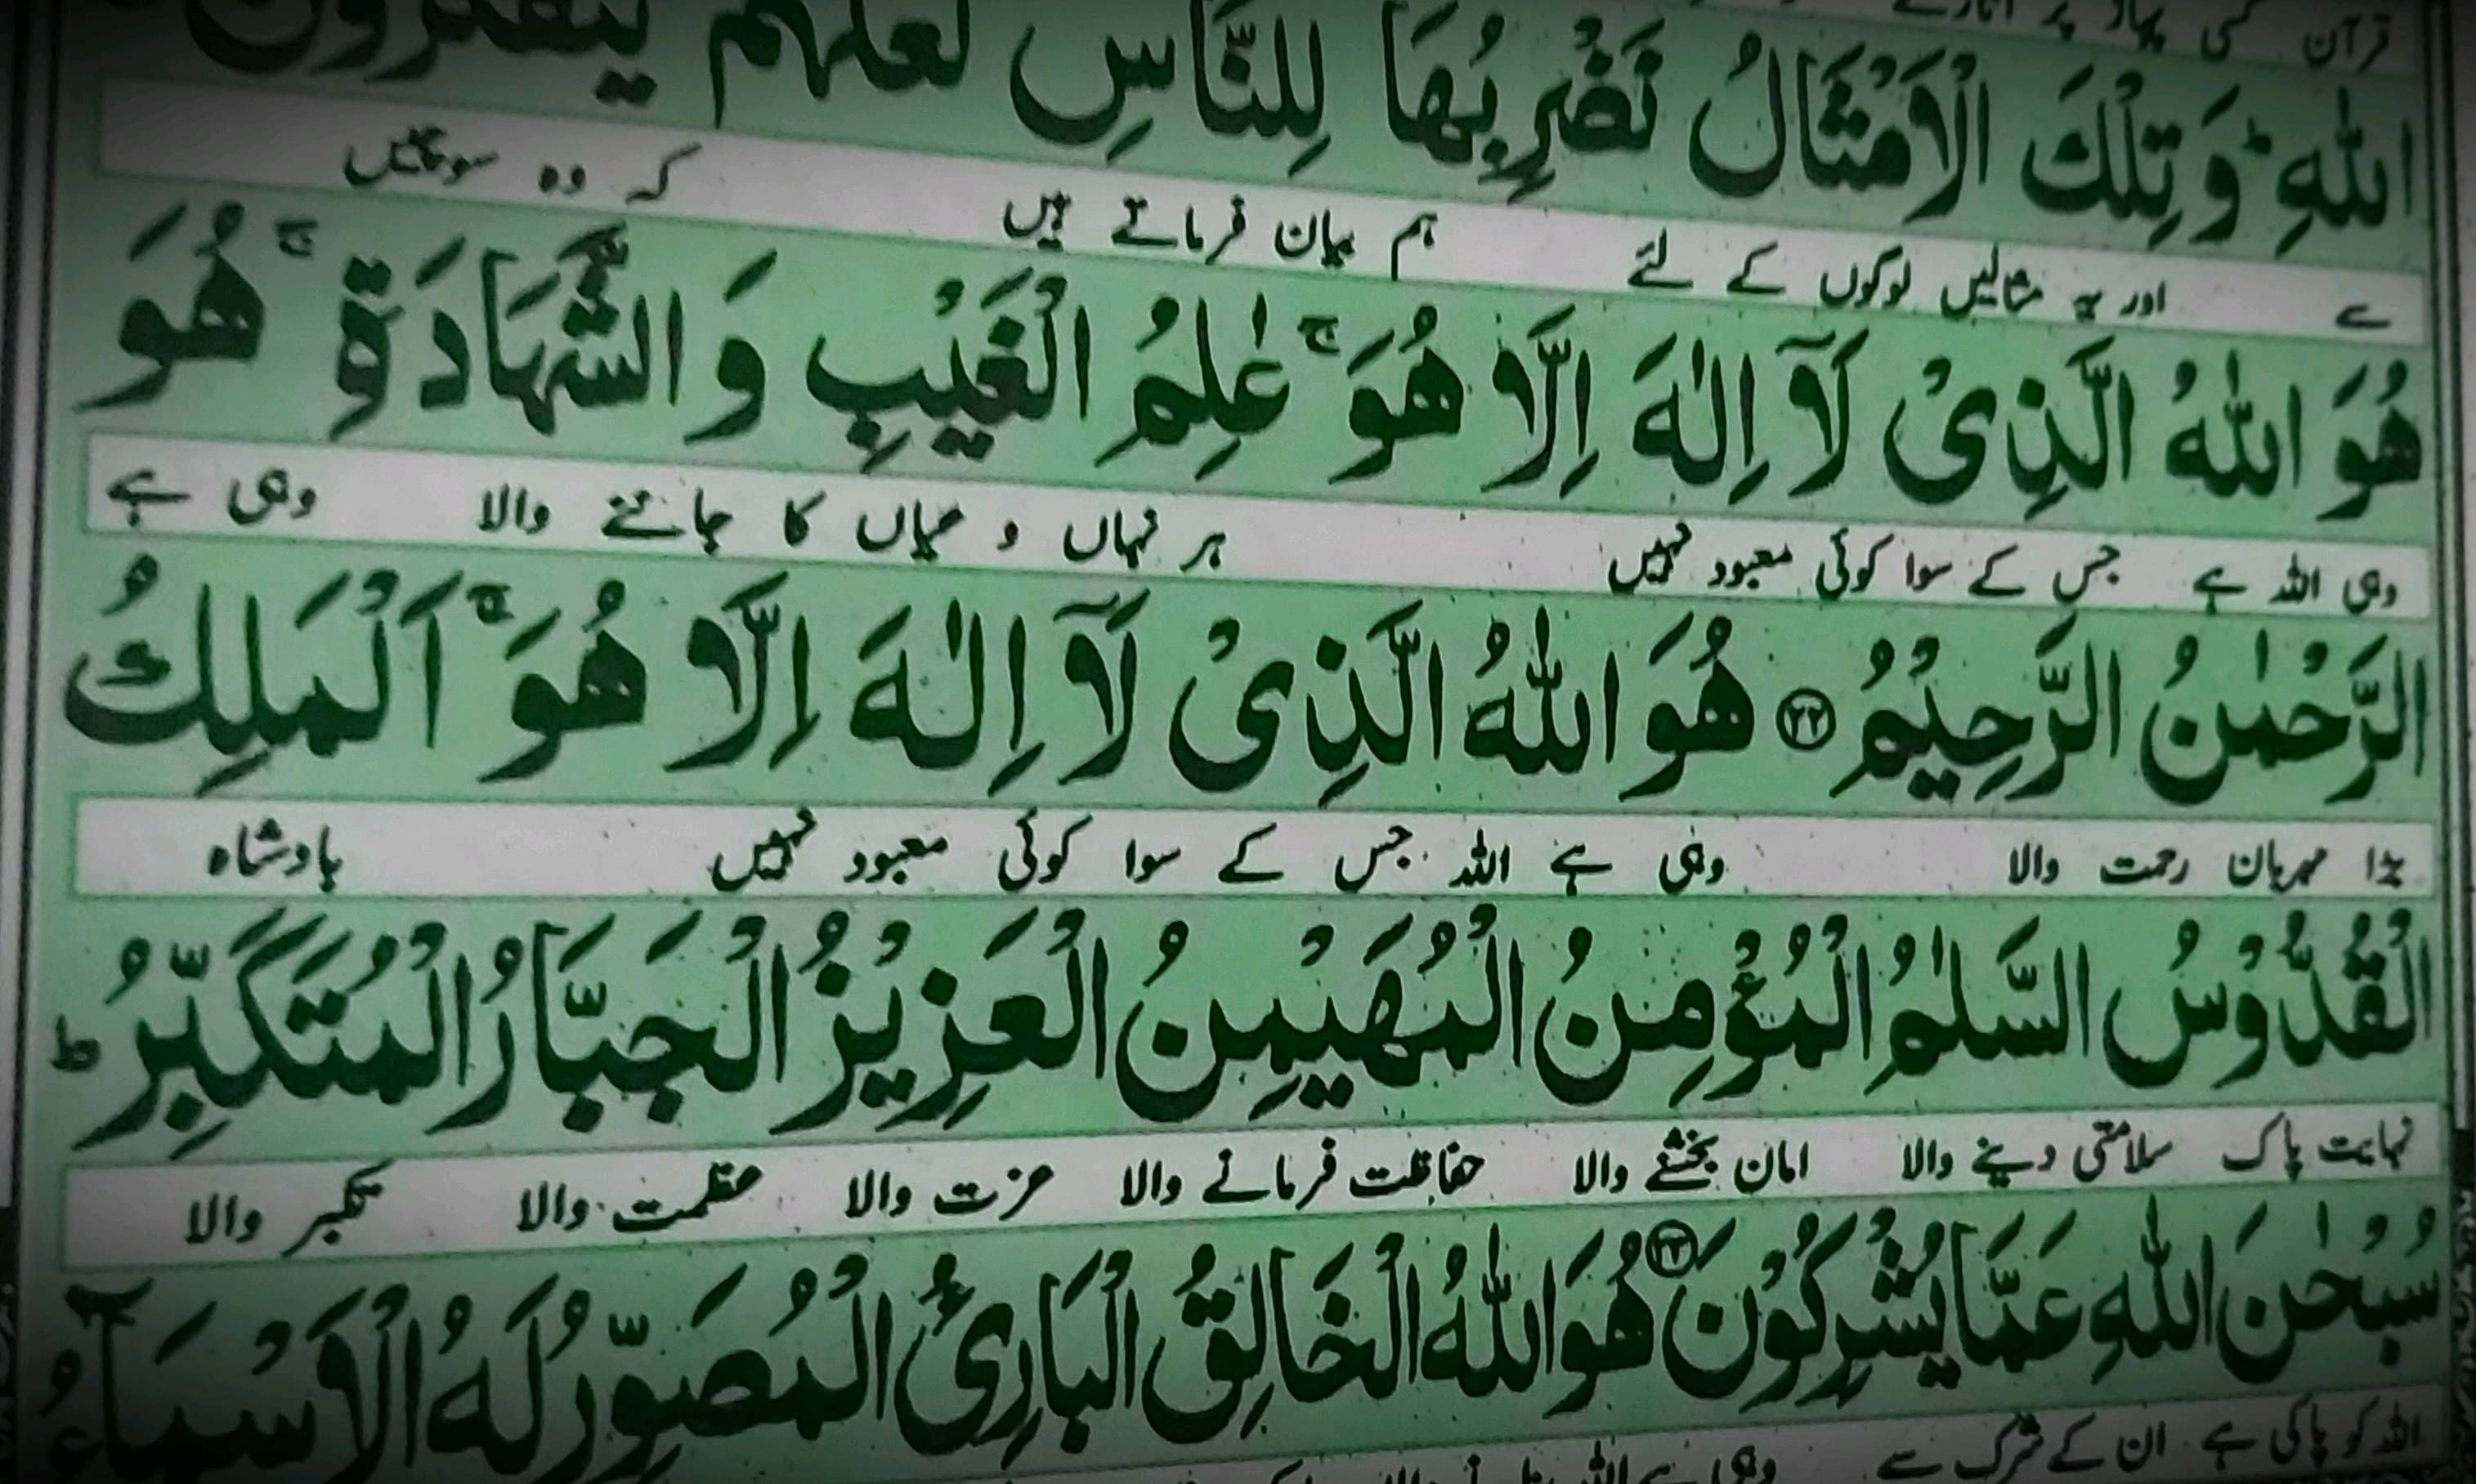 قرآن کسی پہاڑ پر اتارتے
اللّٰهِ ؕ وَ تِلْكَ الْاَمْثَالُ نَضْرِبُهَا لِلنَّاسِ لَعَلَّهُمْ يَتَفَكَّرُوْنَ
سے اور یہ مثالیں لوگوں کے لئے ہم بیان فرماتے ہیں کہ وہ سوچیں
هُوَ اللّٰهُ الَّذِیْ لَاۤ اِلٰهَ اِلَّا هُوَ ۚ عٰلِمُ الْغَیْبِ وَ الشَّهَادَةِ ۚ هُوَ
وہی اللہ ہے جس کے سوا کوئی معبود نہیں ہر نہاں و عیاں کا جاننے والا وہی ہے
الرَّحْمٰنُ الرَّحِیْمُ ﴿۲۲﴾ هُوَ اللّٰهُ الَّذِیْ لَاۤ اِلٰهَ اِلَّا هُوَ ۚ اَلْمَلِكُ
بڑا مہربان رحمت والا وہی ہے اللہ جس کے سوا کوئی معبود نہیں بادشاہ
الْقُدُّوْسُ السَّلٰمُ الْمُؤْمِنُ الْمُهَیْمِنُ الْعَزِیْزُ الْجَبَّارُ الْمُتَكَبِّرُ ؕ
نہایت پاک سلامتی دینے والا امان بخشنے والا حفاظت فرمانے والا عزت والا عظمت والا تکبر والا
سُبْحٰنَ اللّٰهِ عَمَّا یُشْرِكُوْنَ ﴿۲۳﴾ هُوَ اللّٰهُ الْخَالِقُ الْبَارِئُ الْمُصَوِّرُ لَهُ الْاَسْمَآءُ
اللہ کو پاکی ہے ان کے شرک سے وہی ہے اللہ